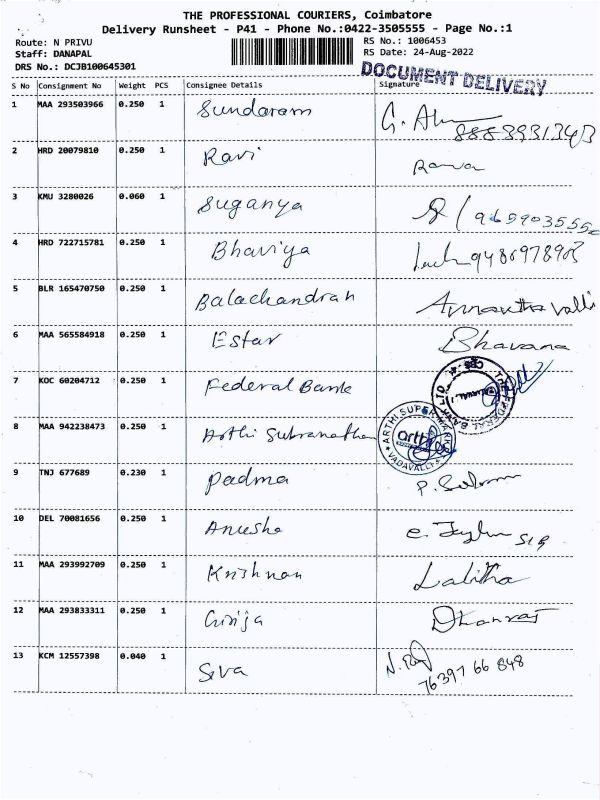 THE PROFESSIONAL COURIERS, Coimbatore
Delivery Runsheet - P41 - Phone No.:0422-3505555 - Page No.:1
Route: N PRIVU RS No.: 1006453
Staff: DANAPAL RS Date: 24-Aug-2022
DRS No.: DCJB100645301
DOCUMENT DELIVERY
S No Consignment No Weight PCS Consignee Details Signature
1 MAA 293503966 0.250 1 Sundaram
2 HRD 20079810 0.250 1 Ravi
3 KMU 3280026 0.060 1 Suganya 9659035550
4 HRD 722715781 0.250 1 Bhaviya
5 BLR 165470750 0.250 1 Balachandran Anantha valli
6 MAA 565584918 0.250 1 Estar Bhavana
7 KOC 60204712 0.250 1 Federal Bank
THE FEDERAL BANK LTD
8 MAA 942238473 0.250 1 Arthi Subranathan
ARTHI SUPER MARKET
arthi
VADAVALLI
9 TNJ 677689 0.230 1 Padma
10 DEL 70081656 0.250 1 Anusha
11 MAA 293992709 0.250 1 Krishnan Lalitha
12 MAA 293833311 0.250 1 Girija Dhanraj
13 KCM 12557398 0.040 1 Siva
76397 66 848